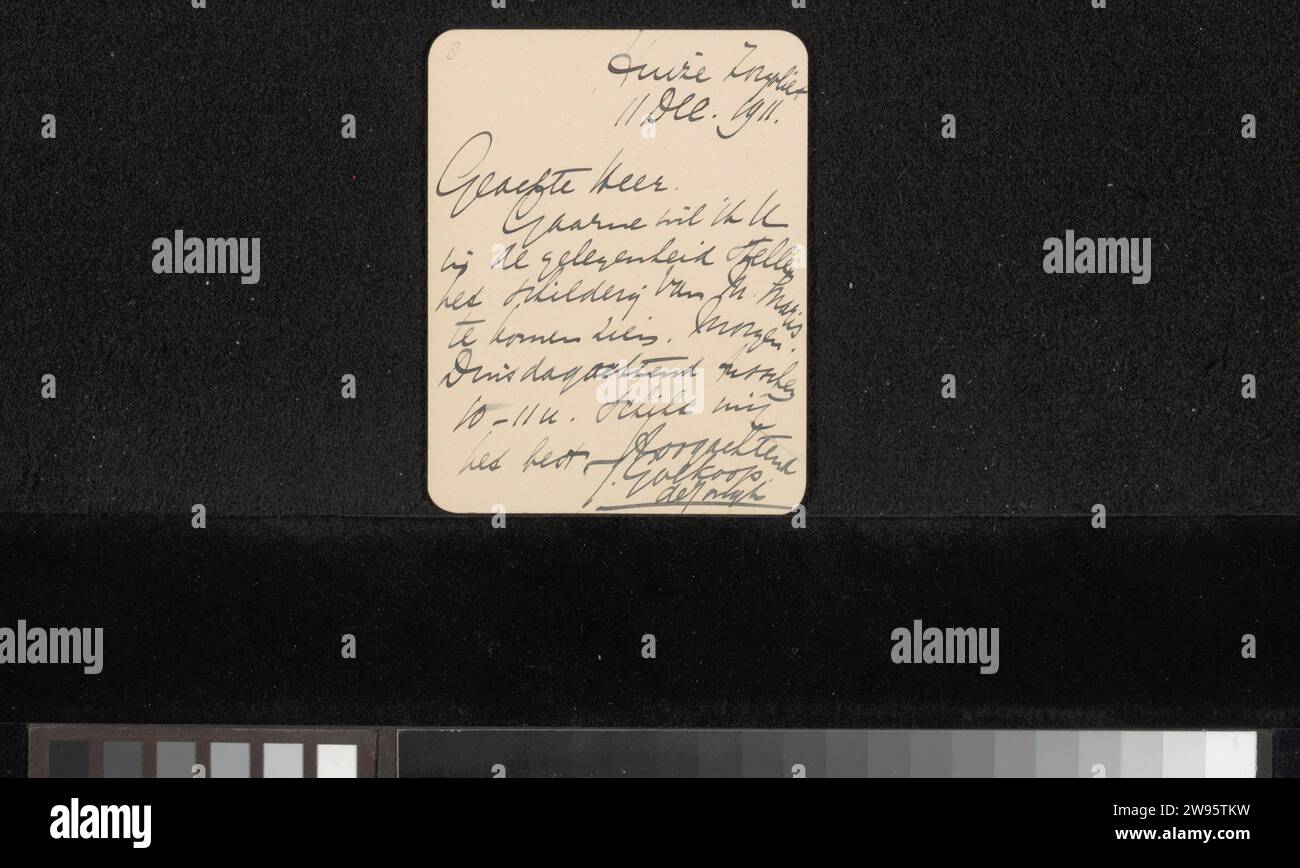 Huize Zorgvliet
11 Dec. 1911.
Geachte Heer.
Gaarne wil ik U
in de gelegenheid stellen
het schilderij van M. Maris
te komen zien. Morgen.
Dinsdagochtend tusschen
10-11 u. schikt mij
het best
Hoogachtend
J. Goekoop
de Jongh
alamy
alamy
alamy
alamy
Image ID: 2W95TKW
www.alamy.com